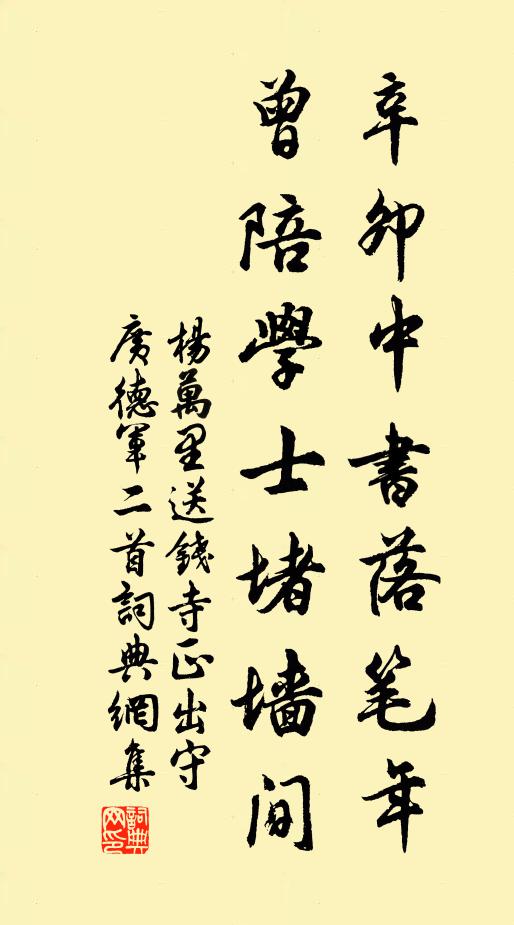 辛卯中書落笔年
曾陪學士堵墙間
楊萬里送錢寺正出守
廣德軍二首詞典網集
詞典网印